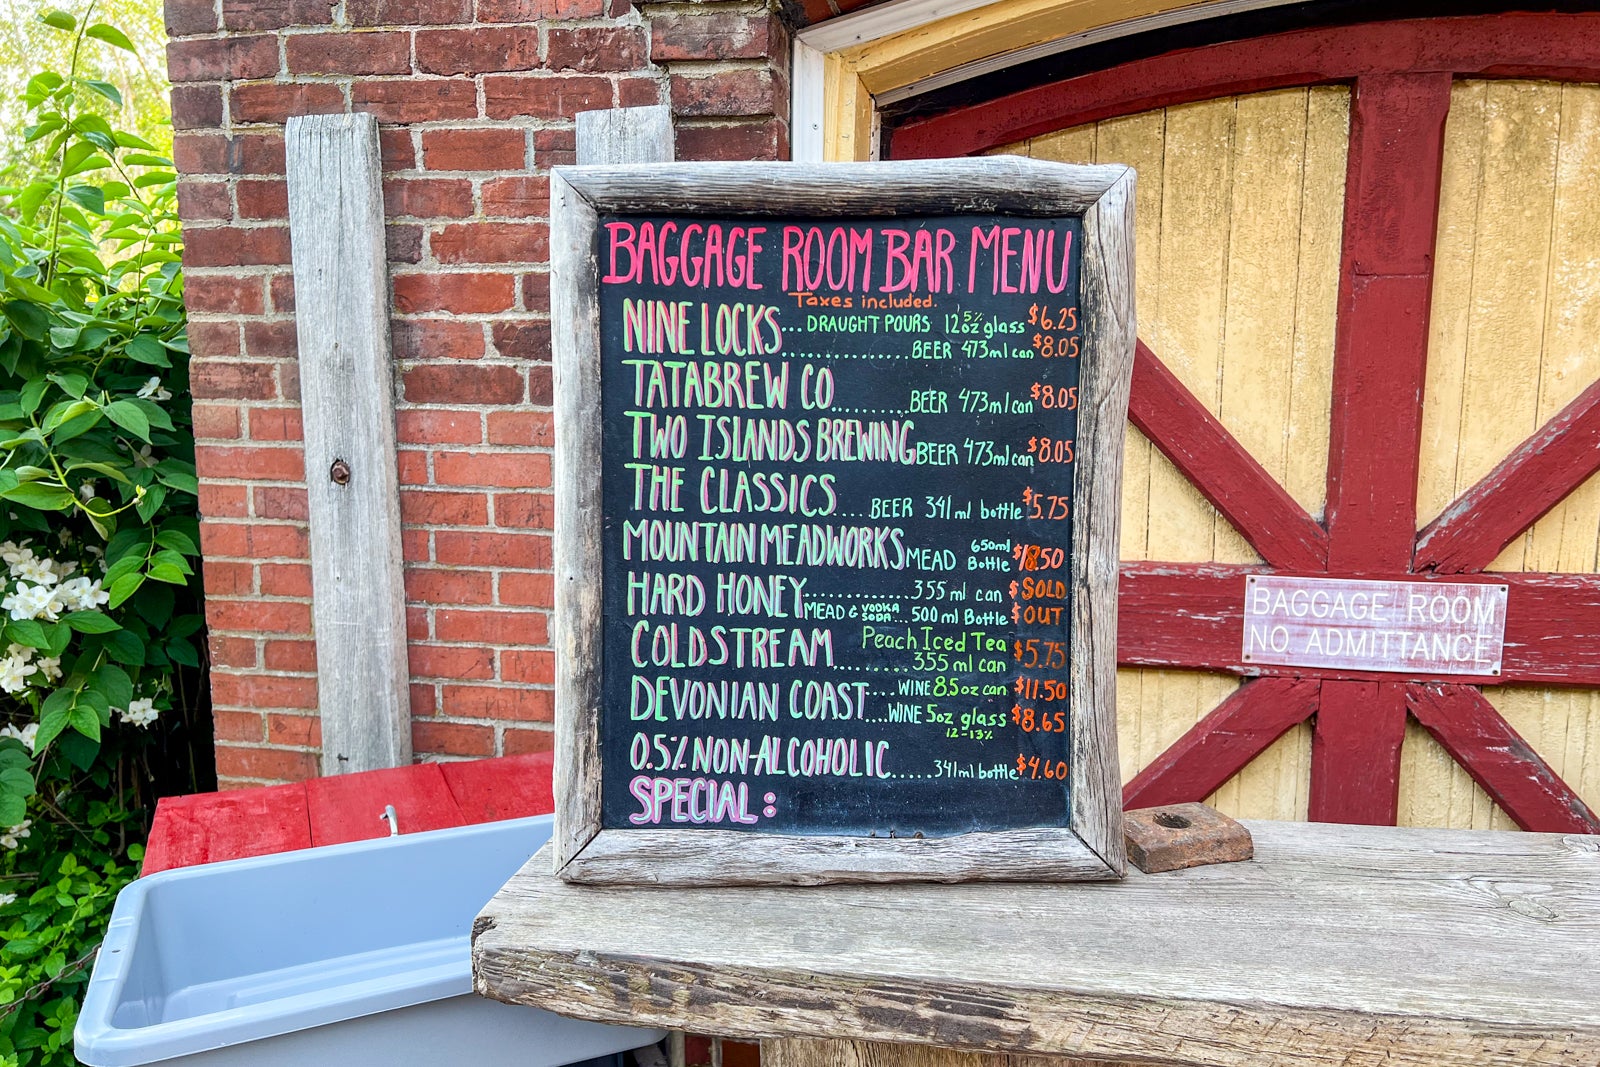 BAGGAGE ROOM BAR MENU
Taxes included.
NINE LOCKS... DRAUGHT POURS 12oz 5% glass $6.25
.............. BEER 473ml can $8.05
TATABREW CO......... BEER 473ml can $8.05
TWO ISLANDS BREWING BEER 473ml can $8.05
THE CLASSICS.... BEER 341ml bottle $5.75
MOUNTAIN MEADWORKS MEAD 650ml Bottle $18.50
HARD HONEY............ 355 ml can $ SOLD
MEAD & VODKA SODA... 500 ml Bottle $ OUT
COLDSTREAM Peach Iced Tea
......... 355 ml can $5.75
DEVONIAN COAST.... WINE 8.5oz can $11.50
....WINE 5oz glass $8.65
12-13%
0.5% NON-ALCOHOLIC..... 341ml bottle $4.60
SPECIAL:
BAGGAGE ROOM
NO ADMITTANCE